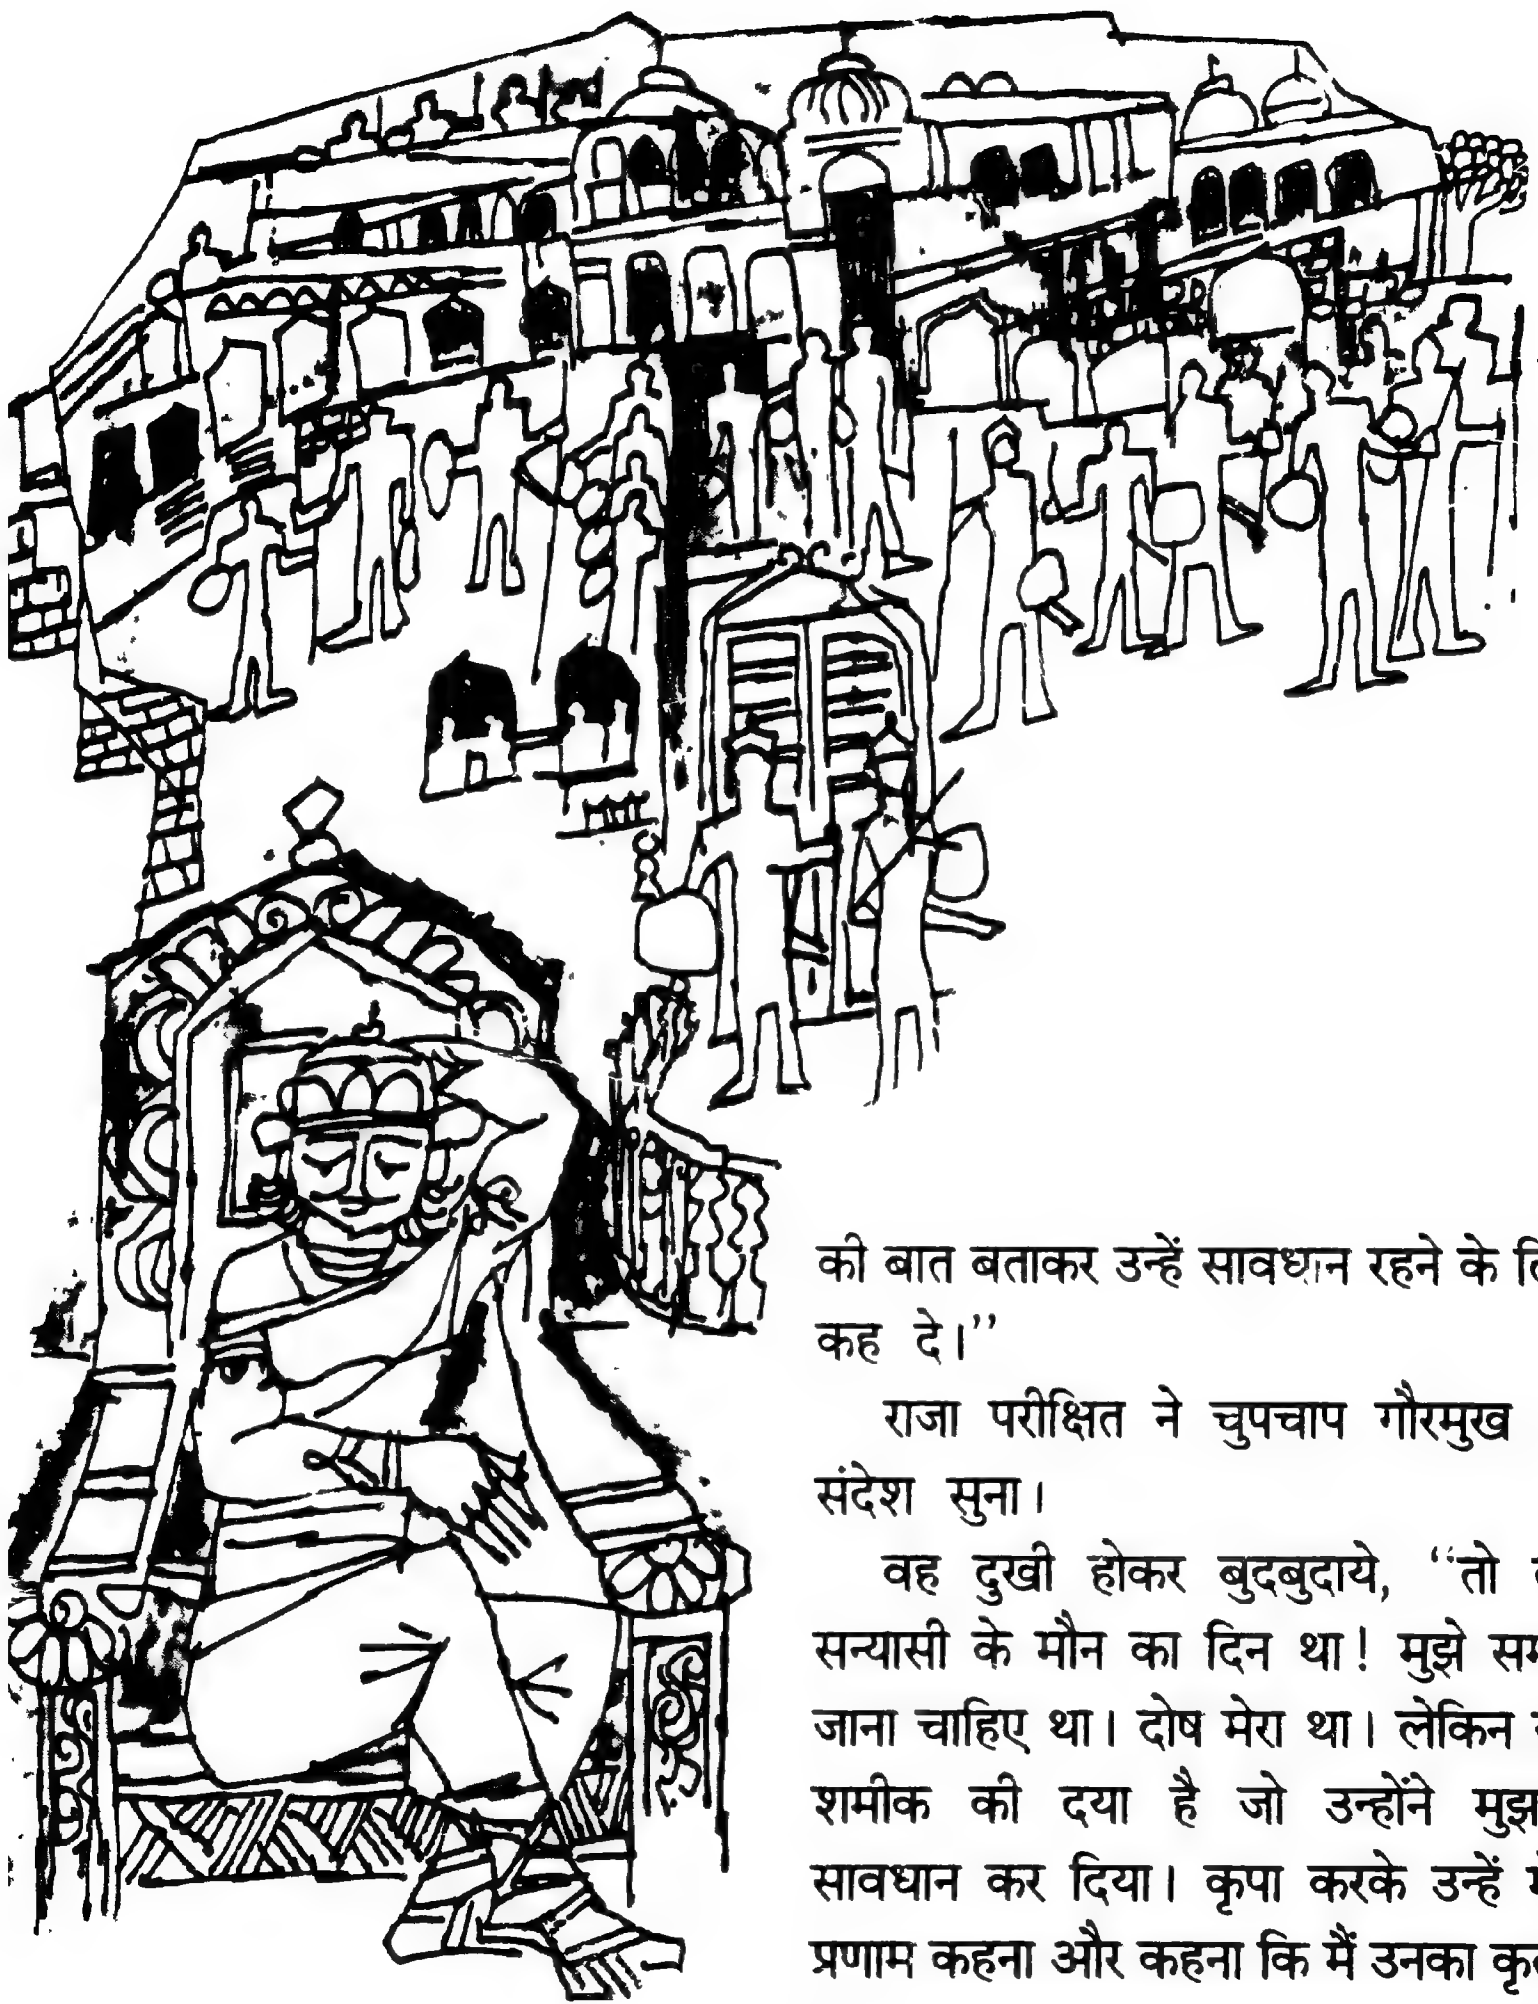 की बात बताकर उन्हें सावधान रहने के
कह दे।”
राजा परीक्षित ने चुपचाप गौरमुख
संदेश सुना।
वह दुखी होकर बुदबुदाये, “तो
सन्यासी के मौन का दिन था! मुझे
जाना चाहिए था। दोष मेरा था। लेकिन
शमीक की दया है जो उन्होंने मुझ
सावधान कर दिया। कृपा करके उन्हें
प्रणाम कहना और कहना कि मैं उनका